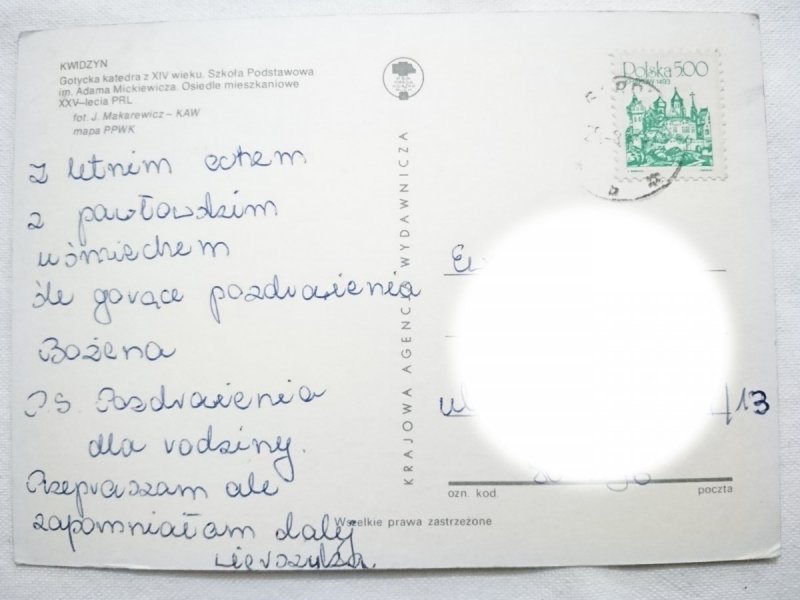 KWIDZYN
Gotycka katedra z XIV wieku. Szkoła Podstawowa
im. Adama Mickiewicza. Osiedle mieszkaniowe
XXV-lecia PRL
fot. J. Makarewicz - KAW
mapa PPWK
Z letnim echem
z pawłowdzim
uśmiechem
śle gorące pozdraienia
Bożena
P.S. Pozdraienia
dla rodziny.
Przepraszam ale
zapomniałam dalej
wierszyka.
KRAJOWA AGENCJA WYDAWNICZA
Polska 5.00
ul
/13
ozn. kod.
poczta
Wszelkie prawa zastrzeżone